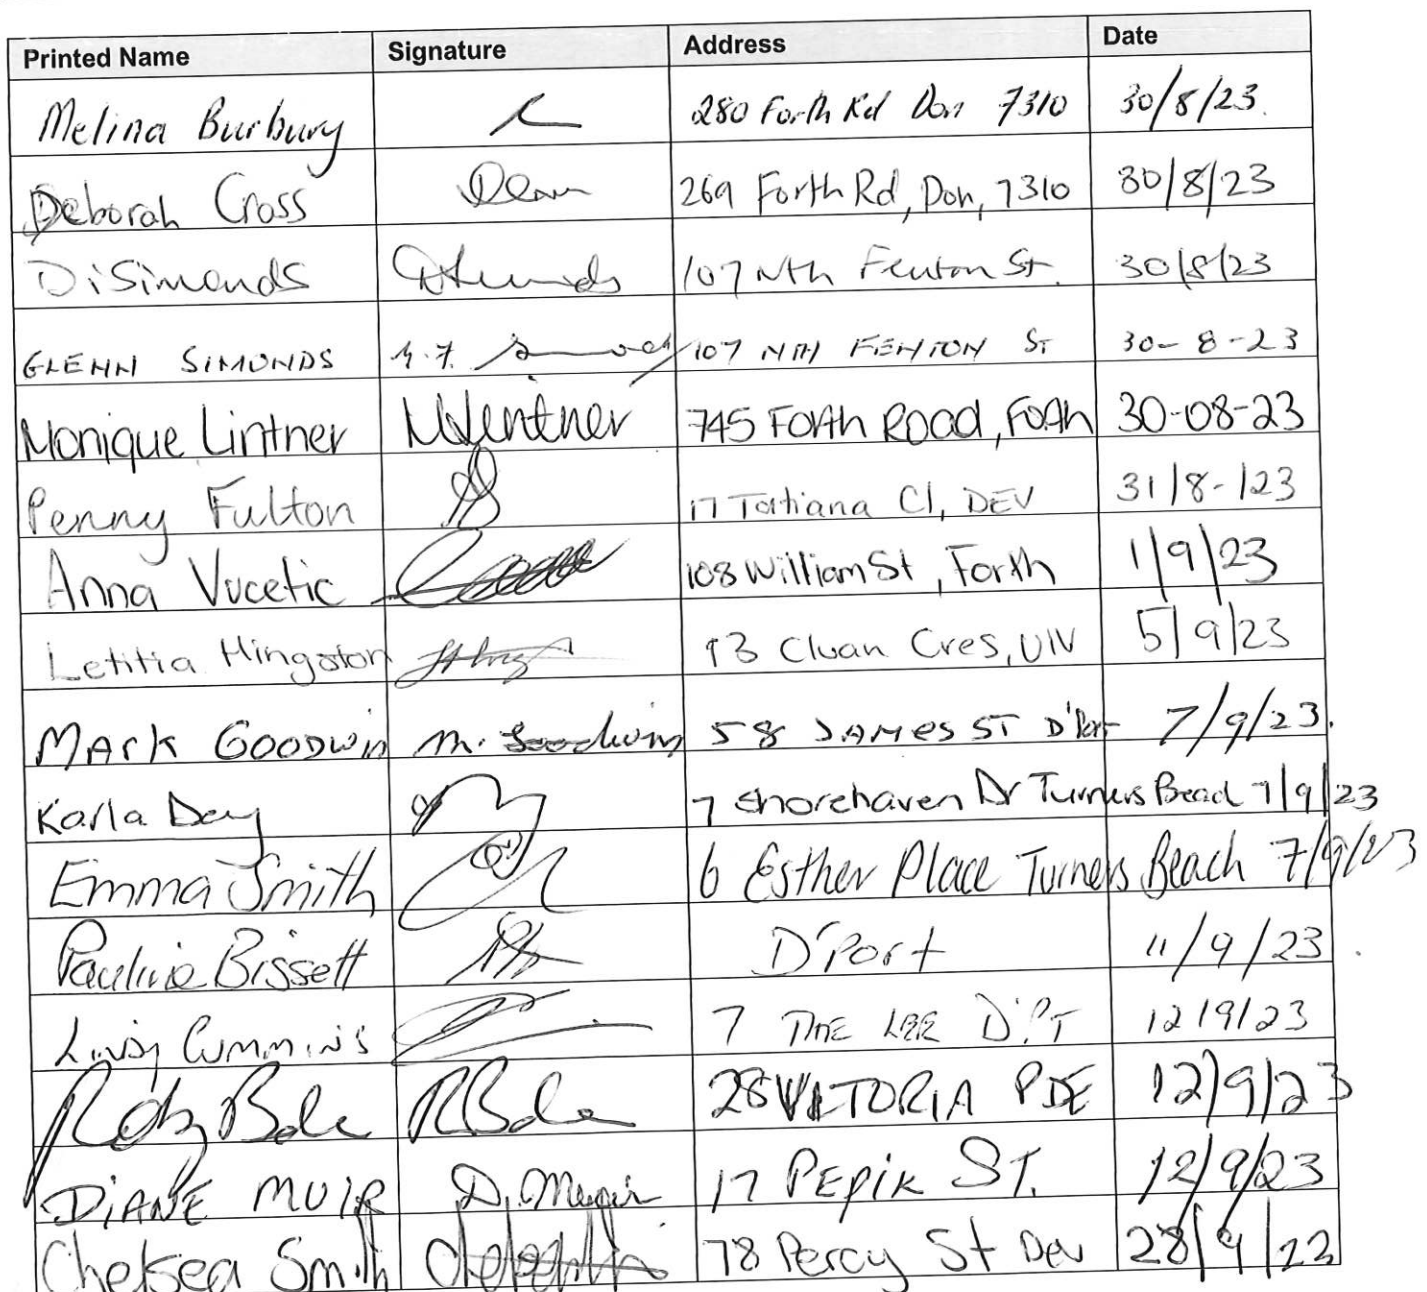 Printed Name Signature Address Date
Melina Burbury 280 Forth Rd Don 7310 30/8/23.
Deborah Cross 269 Forth Rd, Don, 7310 30/8/23
Di Simonds 107 Nth Fenton St. 30/8/23
GLENN SIMONDS 107 NTH FENTON ST 30-8-23
Monique Lintner 745 Forth Road, Forth 30-08-23
Penny Fulton 17 Tatiana Cl, DEV 31/8-/23
Anna Vucetic 108 William St, Forth 1/9/23
Letitia Hingston 13 Cluan Cres, Ulv 5/9/23
MARK GOODWIN M. Goodwin 58 JAMES ST D'Port 7/9/23.
Karla Day 7 Shorehaven Dr Turners Beach 7/9/23
Emma Smith 6 Esther Place Turners Beach 7/9/23
Pauline Bissett D'Port 11/9/23
Cummins 7 THE LEE D'PT 12/9/23
28 VICTORIA PDE 12/9/23
DIANE MUIR D. Muir 17 PEPIK ST. 12/9/23
Chelsea Smith 78 Percy St Dev 28/9/23